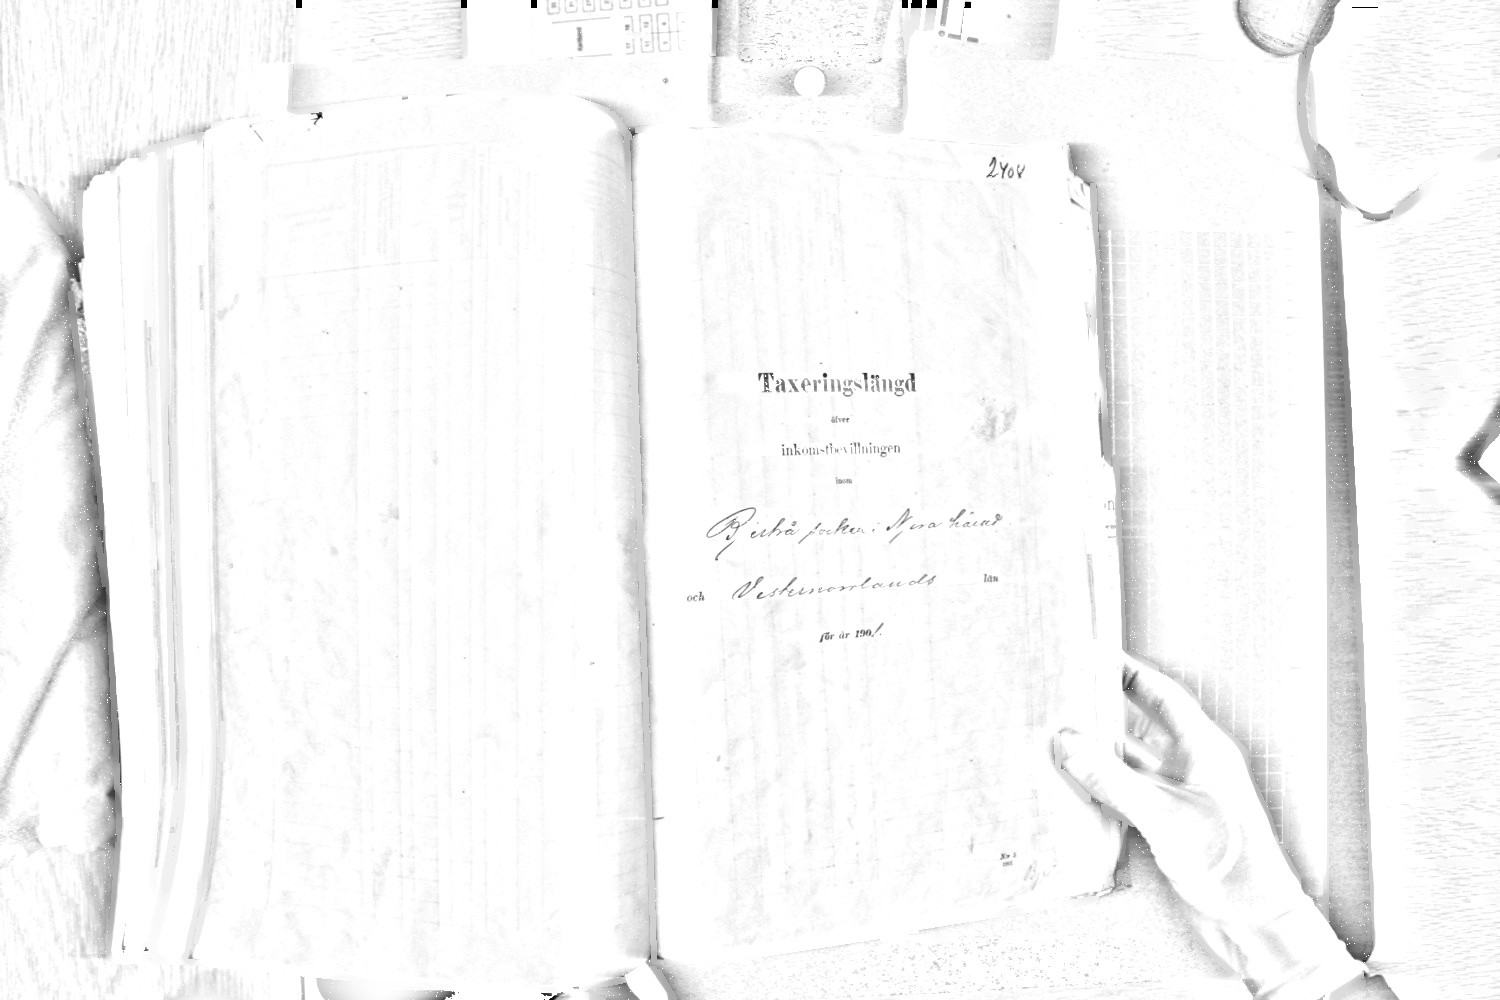 2408
Taxeringslängd
öfver
inkomstbevillningen
inom
Bjertrå socken i Nora härad
och Vesternorrlands län
för år 1901.
Nr 3